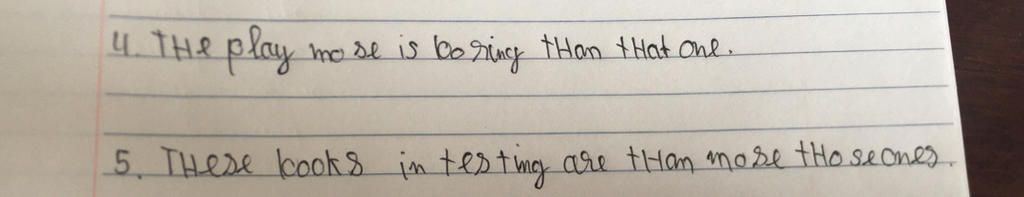 4. THe play more is boring tHan tHat one.
5. THese books in testing are tHan more tHose ones.